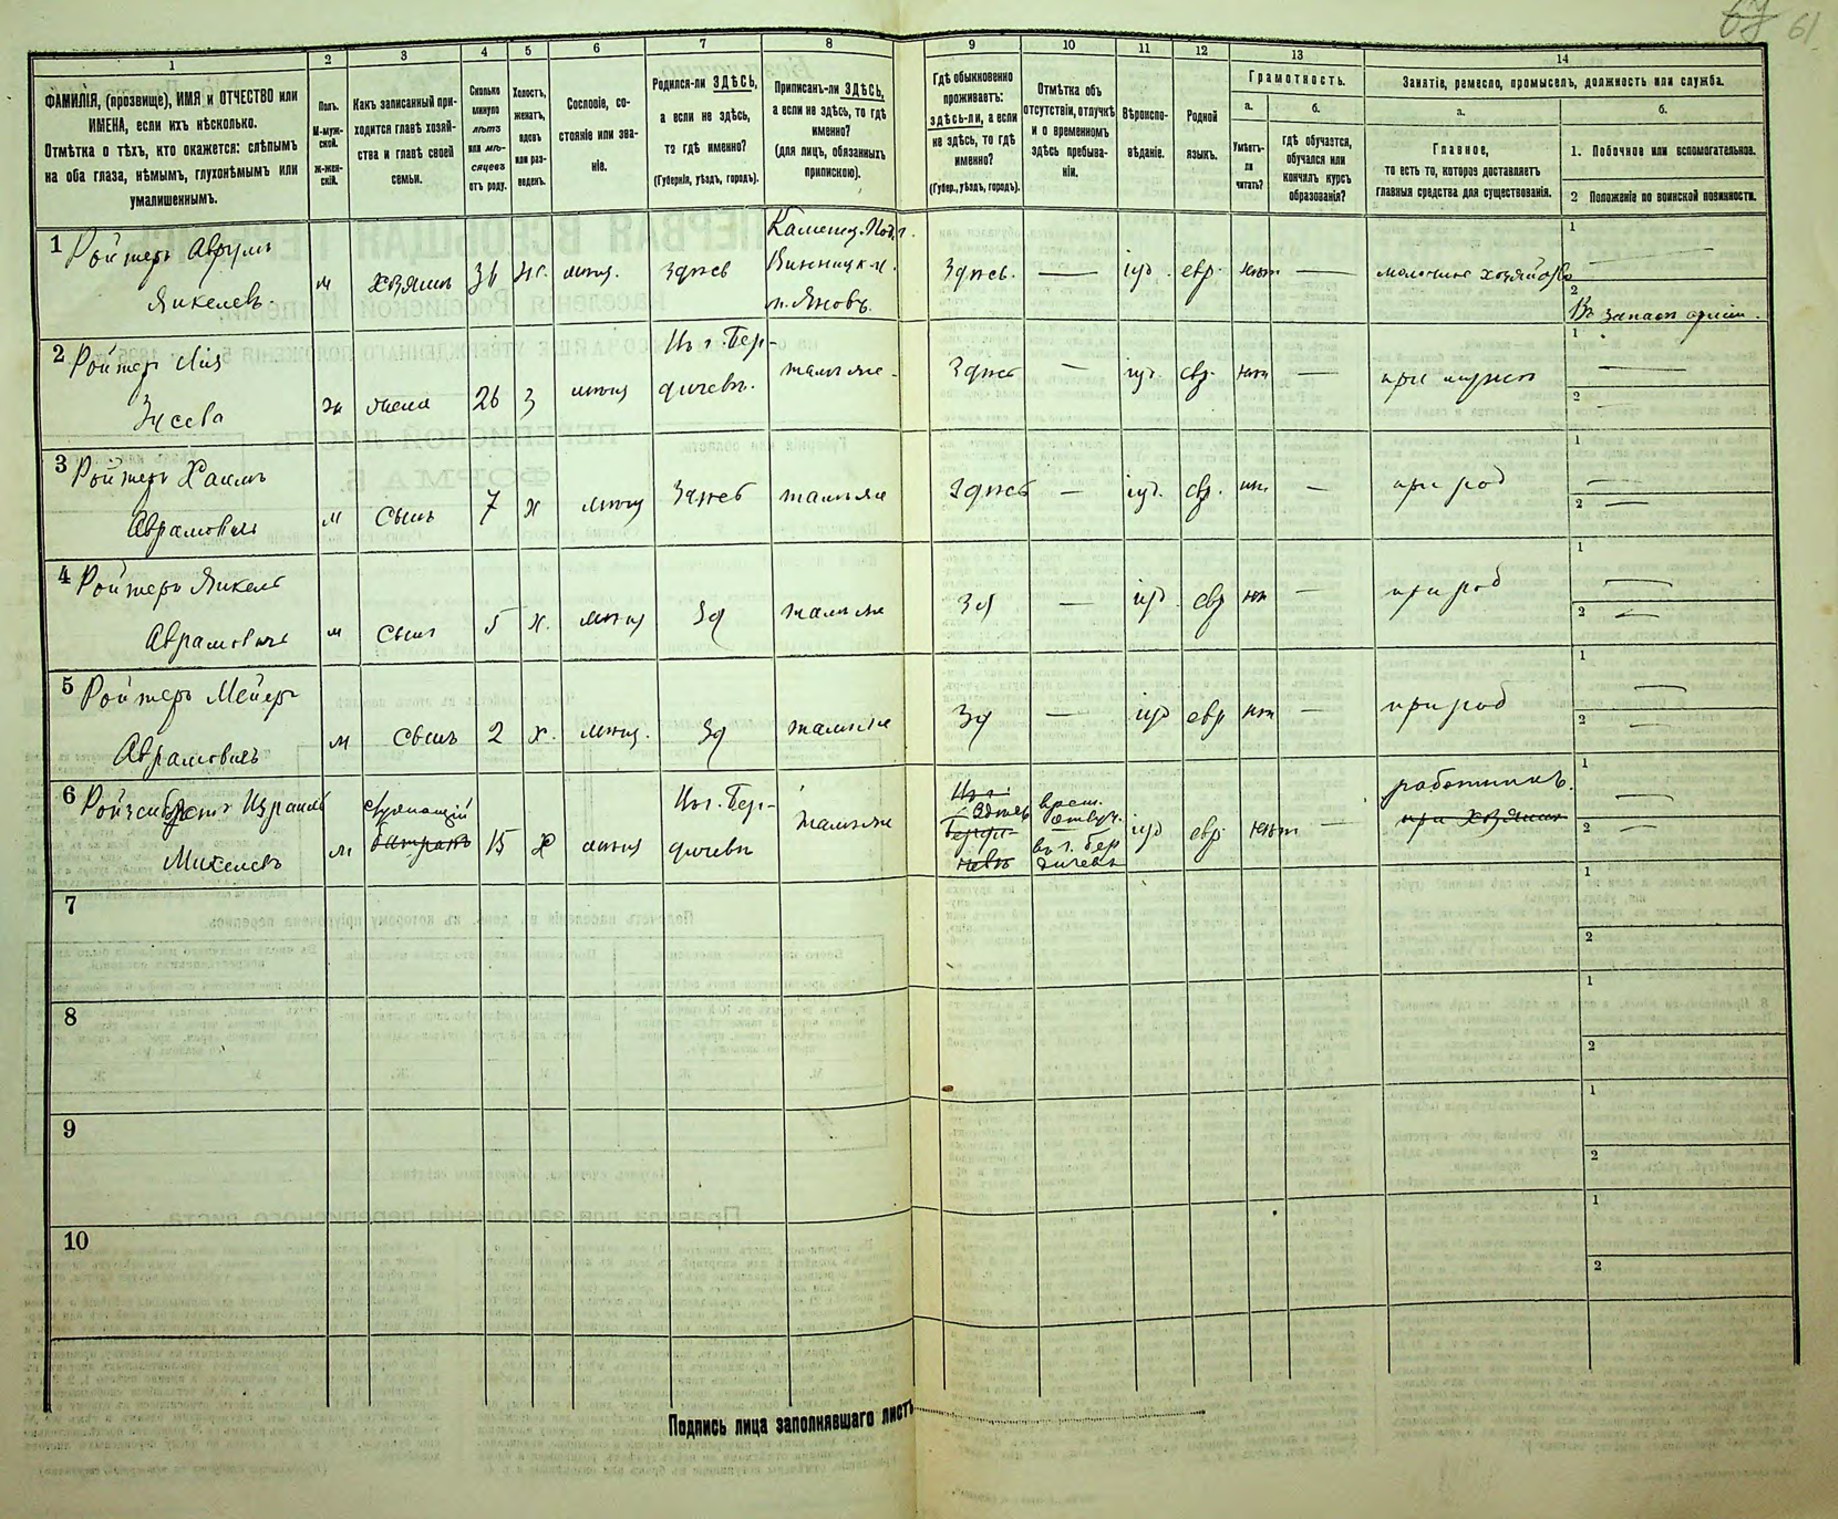 67 61
1
ФАМИЛІЯ, (прозвище), ИМЯ и ОТЧЕСТВО или
ИМЕНА, если ихъ нѣсколько.
Отмѣтка о тѣхъ, кто окажется: слѣпымъ
на оба глаза, нѣмымъ, глухонѣмымъ или
умалишеннымъ.
2
Полъ.
М-муж-
ской.
ж-жен-
скій.
3
Какъ записанный при-
ходится главѣ хозяй-
ства и главѣ своей
семьи.
4
Сколько
минуло
лѣтъ
или мѣ-
сяцевъ
отъ роду.
5
Холостъ,
женатъ,
вдовъ
или раз-
веденъ.
6
Сословіе, со-
стояніе или зва-
ніе.
7
Родился-ли ЗДѢСЬ,
а если не здѣсь,
то гдѣ именно?
(Губернія, уѣздъ, городъ).
8
Приписанъ-ли ЗДѢСЬ,
а если не здѣсь, то гдѣ
именно?
(для лицъ, обязанныхъ
припискою).
9
Гдѣ обыкновенно
проживаетъ:
здѣсь-ли, а если
не здѣсь, то гдѣ
именно?
(Губер., уѣздъ, городъ).
10
Отмѣтка объ
отсутствіи, отлучкѣ
и о временномъ
здѣсь пребыва-
ніи.
11
Вѣроиспо-
вѣданіе.
12
Родной
языкъ.
13
Грамотность.
а.
Умѣетъ-
ли
читать?
б.
гдѣ обучается,
обучался или
кончилъ курсъ
образованія?
14
Занятіе, ремесло, промыселъ, должность или служба.
а.
Главное,
то есть то, которое доставляетъ
главныя средства для существованія.
б.
1. Побочное или вспомогательное.
2 Положеніе по воинской повинности.
1 Ройтеръ Аврумъ
Янкелевъ.
м хозяинъ 36 ж. мѣщ. здѣсь
Каменец. Под. г.
Винницк. у.
м. Яновъ.
Здѣсь. — іуд. евр. нѣт — молочное хозяйство
1 —
2 Въ запасѣ арміи.
2 Ройтеръ
Зусева
ж жена 26 З мѣщ
Въ г. Бер-
дичевѣ.
тамъ же.
Здѣсь — іуд. евр. нѣт — при мужѣ
1 —
2 —
3 Ройтеръ Хаимъ
Аврамовичъ
м сынъ 7 х мѣщ Здѣсь тамъ же
Здѣсь — іуд. евр. нѣт — при род
1 —
2 —
4 Ройтеръ Янкель
Аврамовичъ
м сынъ 5 х. мѣщ Зд тамъ же
Зд — іуд евр нѣт — при род
1 —
2 —
5 Ройтеръ Мейеръ
Аврамовичъ
м сынъ 2 х. мѣщ. Зд тамъ же
Зд — іуд евр нѣт — при род
1 —
2 —
6 Израиль
Микелевъ
м служащій
батракъ
15 х мѣщ
Въ г. Бер-
дичевѣ
тамъ же
Здѣсь
Берди-
чевѣ
врем.
отлуч.
въ г. Бер
дичевѣ
іуд евр. нѣт —
работникъ.
при хозяинѣ
1 —
2 —
7
1
2
8
1
2
9
1
2
10
1
2
Подпись лица заполнявшаго листъ